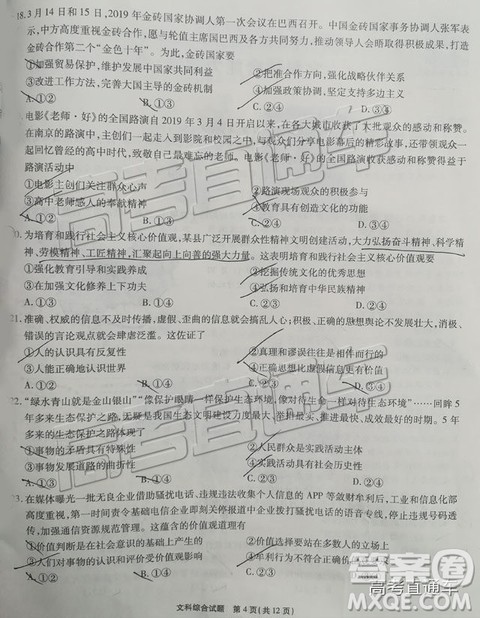 18.3月14日和15日，2019年金砖国家协调人第一次会议在巴西召开。中国金砖国家事务协调人张军表
示，中方高度重视金砖合作，愿与轮值主席国巴西及各方共同努力，推动领导人会晤取得积极成果，
打造金砖合作第二个“金色十年”。为此，金砖国家要
①加强贸易保护，维护发展中国家共同利益
②把准合作前进方向，强化战略伙伴关系
③改进工作方法，完善大国主导的金砖机制
④加强政策协调，坚定支持多边主义
A.①② B.①③ C.②④ D.③④
电影《老师·好》的全国路演自2019年3月4日开启以来，在各大城市都收获了大批观众的感动和称赞。
在南京的路演中，主创们一起走入到影院和校园之中，与观众们一起分享影片的精神和情感，还和大家一
起回忆曾经的高中时代，致敬自己人生中的恩师。电影《老师·好》的全国路演收获感动和称赞得益于
路演活动中
①电影主创们关注群众心声
②路演现场观众的积极参与
③高中老师感人的奉献精神
④教育具有创造文化的功能
A.①② B.①③ C.②④ D.③④
0.为培育和践行社会主义核心价值观，某县广泛开展群众性精神文明创建活动，大力弘扬奋斗精神、科学精
神、劳模精神、工匠精神，汇聚起向上向善的强大力量。这表明培育和践行社会主义核心价值观要
①强化教育引导和实践养成
②挖掘传统文化的优秀思想
③在加强文化修养下上功夫
④弘扬和培育中华民族精神
A.①③ B.①④ C.②③ D.②④
21.准确、权威的信息不及时传播，虚假、歪曲的信息就会搞乱人心；积极、正确的思想舆论不发展壮大，消极、
错误的言论观点就会肆虐泛滥。这佐证了
①人的认识具有反复性
②真理和谬误往往是相伴而行的
③人能正确地认识世界
④正确思想比虚假信息更有价值
A.①② B.①④ C.②③ D.③④
2.“绿水青山就是金山银山”“像保护眼睛一样保护生态环境，像对待生命一样对待生态环境”……回眸5
年多来生态保护之路，无疑是我国生态文明建设力度最大、举措最实、推进最快、成效最好的时期。5年多
来的生态保护之路体现了
①事物的矛盾具有特殊性
②人民群众是实践的主体
③事物的变化是有规律的
④实践活动具有社会历史性
A.①② B.①③ C.②④ D.③④
3.在媒体曝光一批无良企业借助骚扰电话、违规违法收集个人信息的APP等敛财牟利后，工业和信息化部
立即严查，要求各基础电信企业即刻关停央视3·15晚会中报道的违规企业，停止违规号码透传，
加强通信资源规范管理。这蕴含的价值观道理有
①价值判断是在社会意识的基础上作出的
②价值选择
④牟利行为不符合正确的价值
A.①② B.①③ C.②④
文科综合试题 第4页（共12页）
高考直通车
答案圈
MXQE.COM
高考直通车